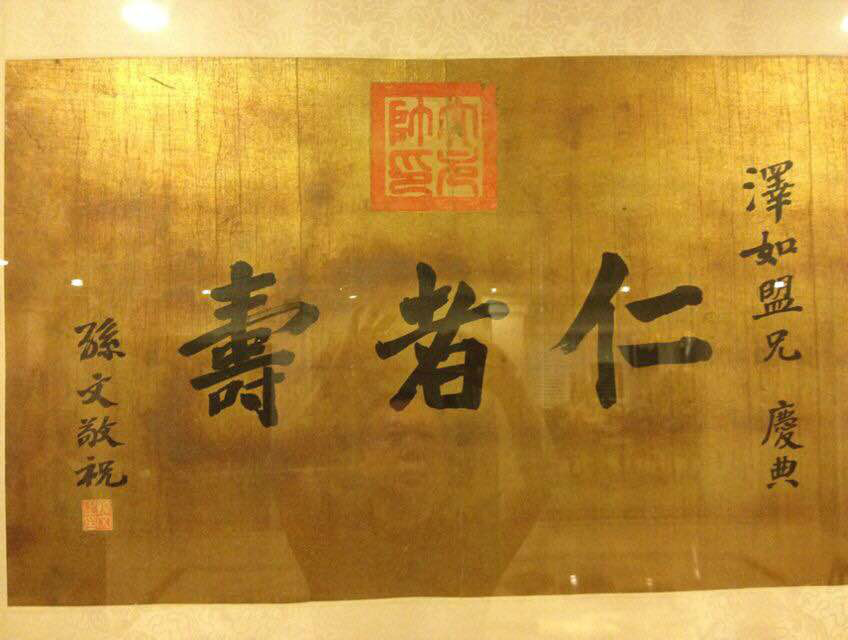 澤如盟兄 慶典
大元
帥印
仁者壽
孫文敬祝